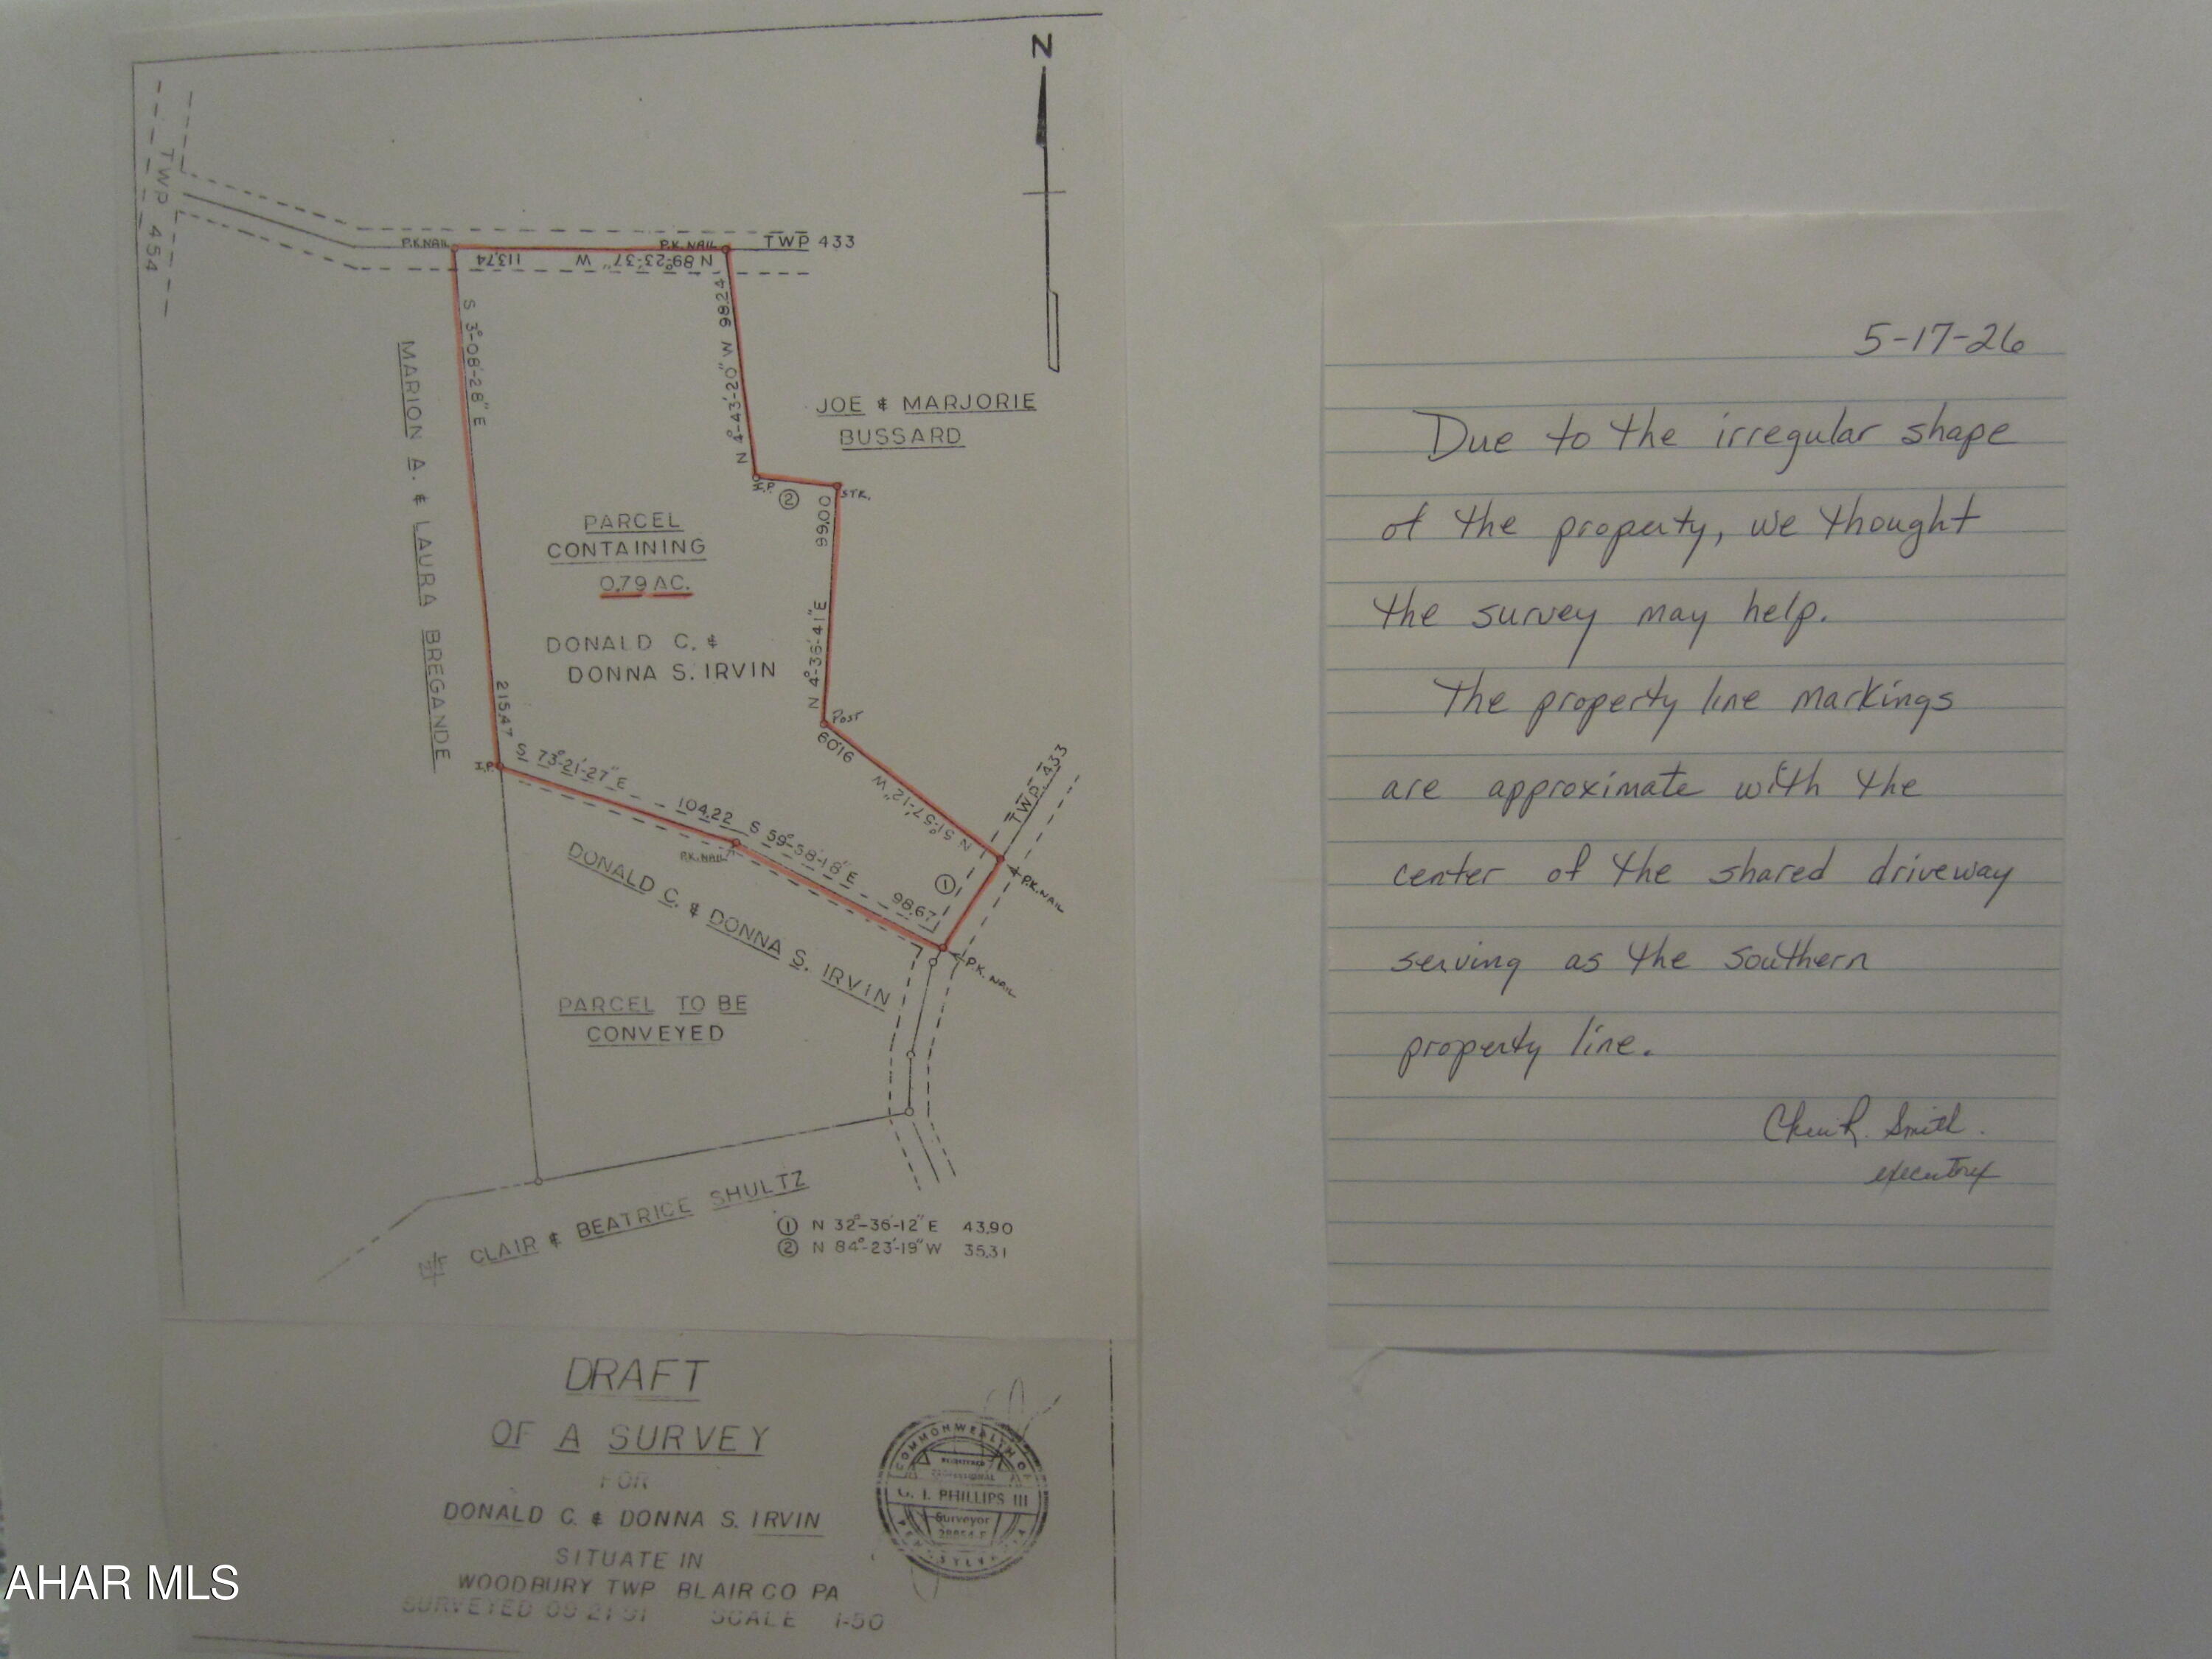 N
TWP 454
P.K.NAIL
P.K. NAIL
TWP 433
N 89°-23'-37" W 113.74
S 3°-08'-28" E 215.47
N 4°-43'-20" W 98.24
MARION A. & LAURA BREGANDE
JOE & MARJORIE
BUSSARD
I.P.
②
STK.
PARCEL
CONTAINING
0.79 AC.
N 4°-36'-41" E 99.00
DONALD C. &
DONNA S. IRVIN
POST
N 51°-57'-12" W 60.16
TWP. 433
I.P.
S 73°-21'-27" E 104.22
P.K. NAIL
S 59°-38'-18" E 98.67
①
P.K. NAIL
P.K. NAIL
DONALD C. & DONNA S. IRVIN
PARCEL TO BE
CONVEYED
N/F CLAIR & BEATRICE SHULTZ
① N 32°-36'-12" E 43.90
② N 84°-23'-19" W 35.31
DRAFT
OF A SURVEY
FOR
DONALD C. & DONNA S. IRVIN
SITUATE IN
WOODBURY TWP BLAIR CO PA
SURVEYED SCALE 1-50
COMMONWEALTH OF
REGISTERED
PROFESSIONAL
G. I. PHILLIPS III
Surveyor
PENNSYLVANIA
5-17-26
Due to the irregular shape
of the property, we thought
the survey may help.
The property line markings
are approximate with the
center of the shared driveway
serving as the southern
property line.
Smith.
executrix
AHAR MLS